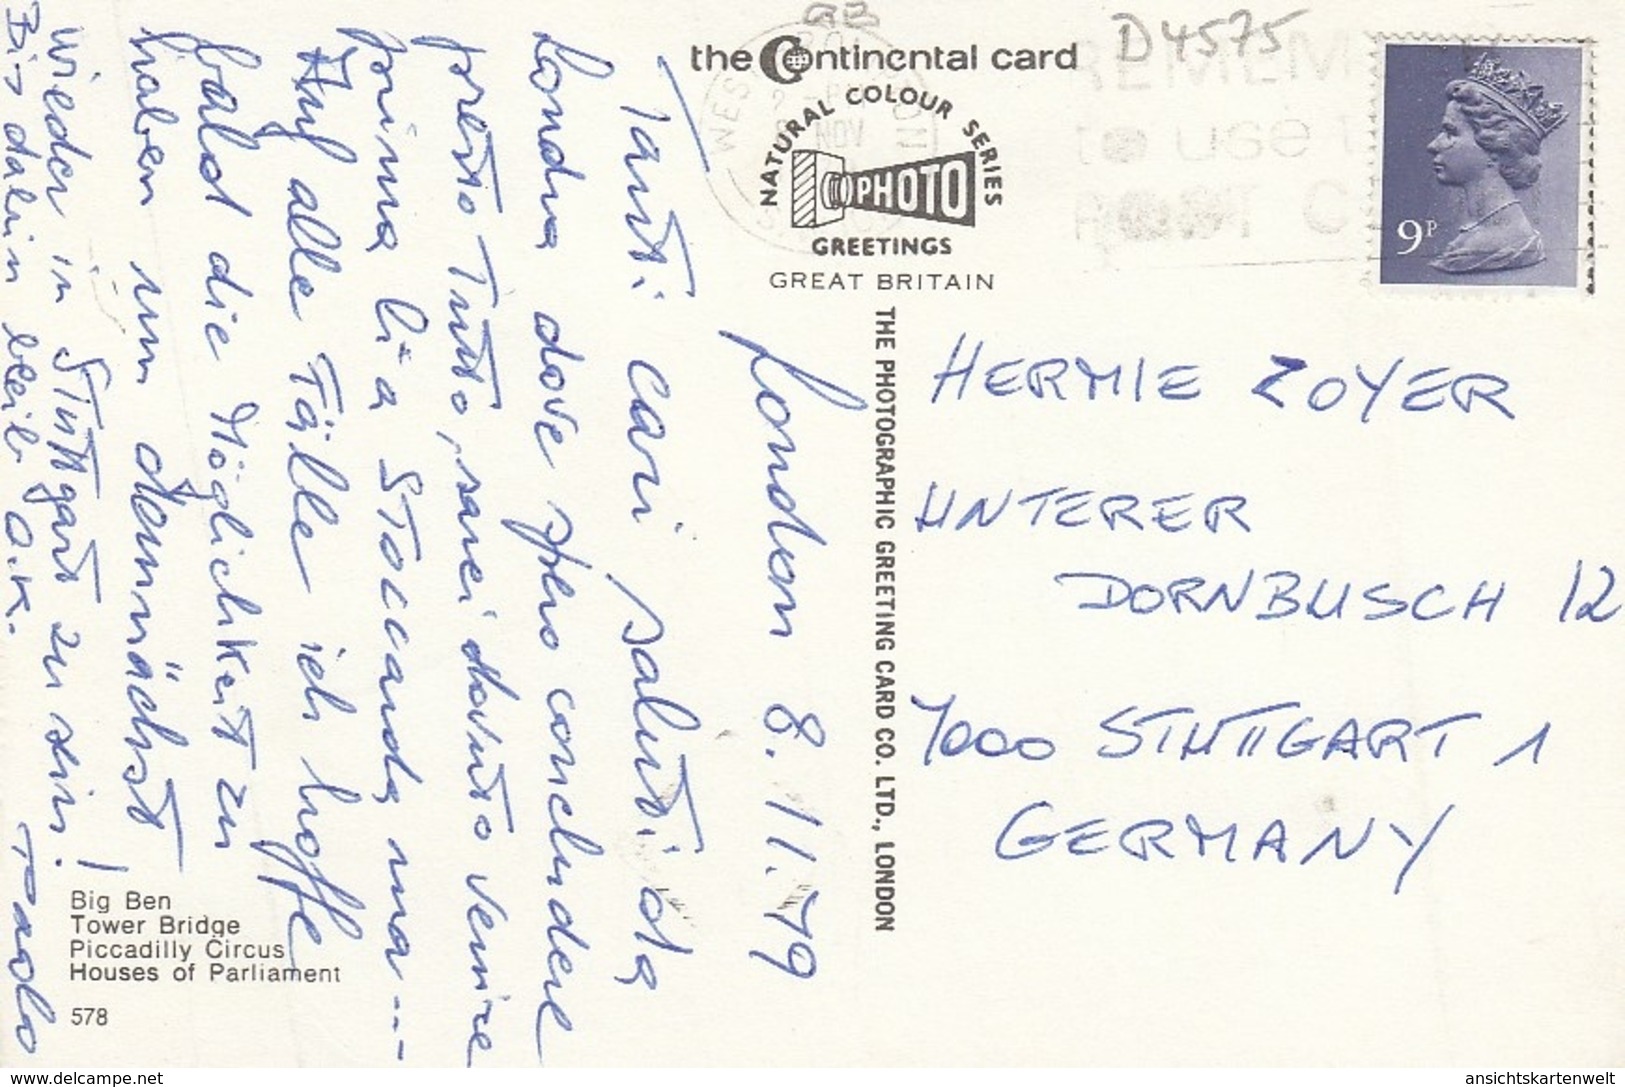 GB
D 4575
the Continental card
NATURAL COLOUR SERIES
PHOTO
GREETINGS
GREAT BRITAIN
REMEM
to use t
POST C
WEST
NOV
9P
THE PHOTOGRAPHIC GREETING CARD CO. LTD., LONDON
London 8.11.79
Tanti cari saluti da
Londra dove spero concludere
presto Tutto, sarei dovuto venire
prima li a Stoccarda ma...
Auf alle Fälle ich hoffe
bald die Möglichkeit zu
haben um demnächst
wieder in Stuttgart zu sein!
Bis dahin bleib o.k.
Paolo
HERMIE ZOYER
UNTERER
DORNBUSCH 12
7000 STUTTGART 1
GERMANY
Big Ben
Tower Bridge
Piccadilly Circus
Houses of Parliament
578
www.delcampe.net
ansichtskartenwelt